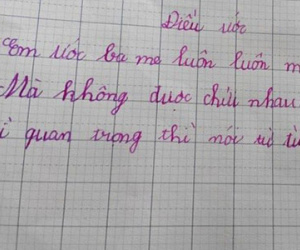 Điều ước
Em ước ba mẹ luôn luôn m
Mà không được chửi nhau
quan trọng thì nói